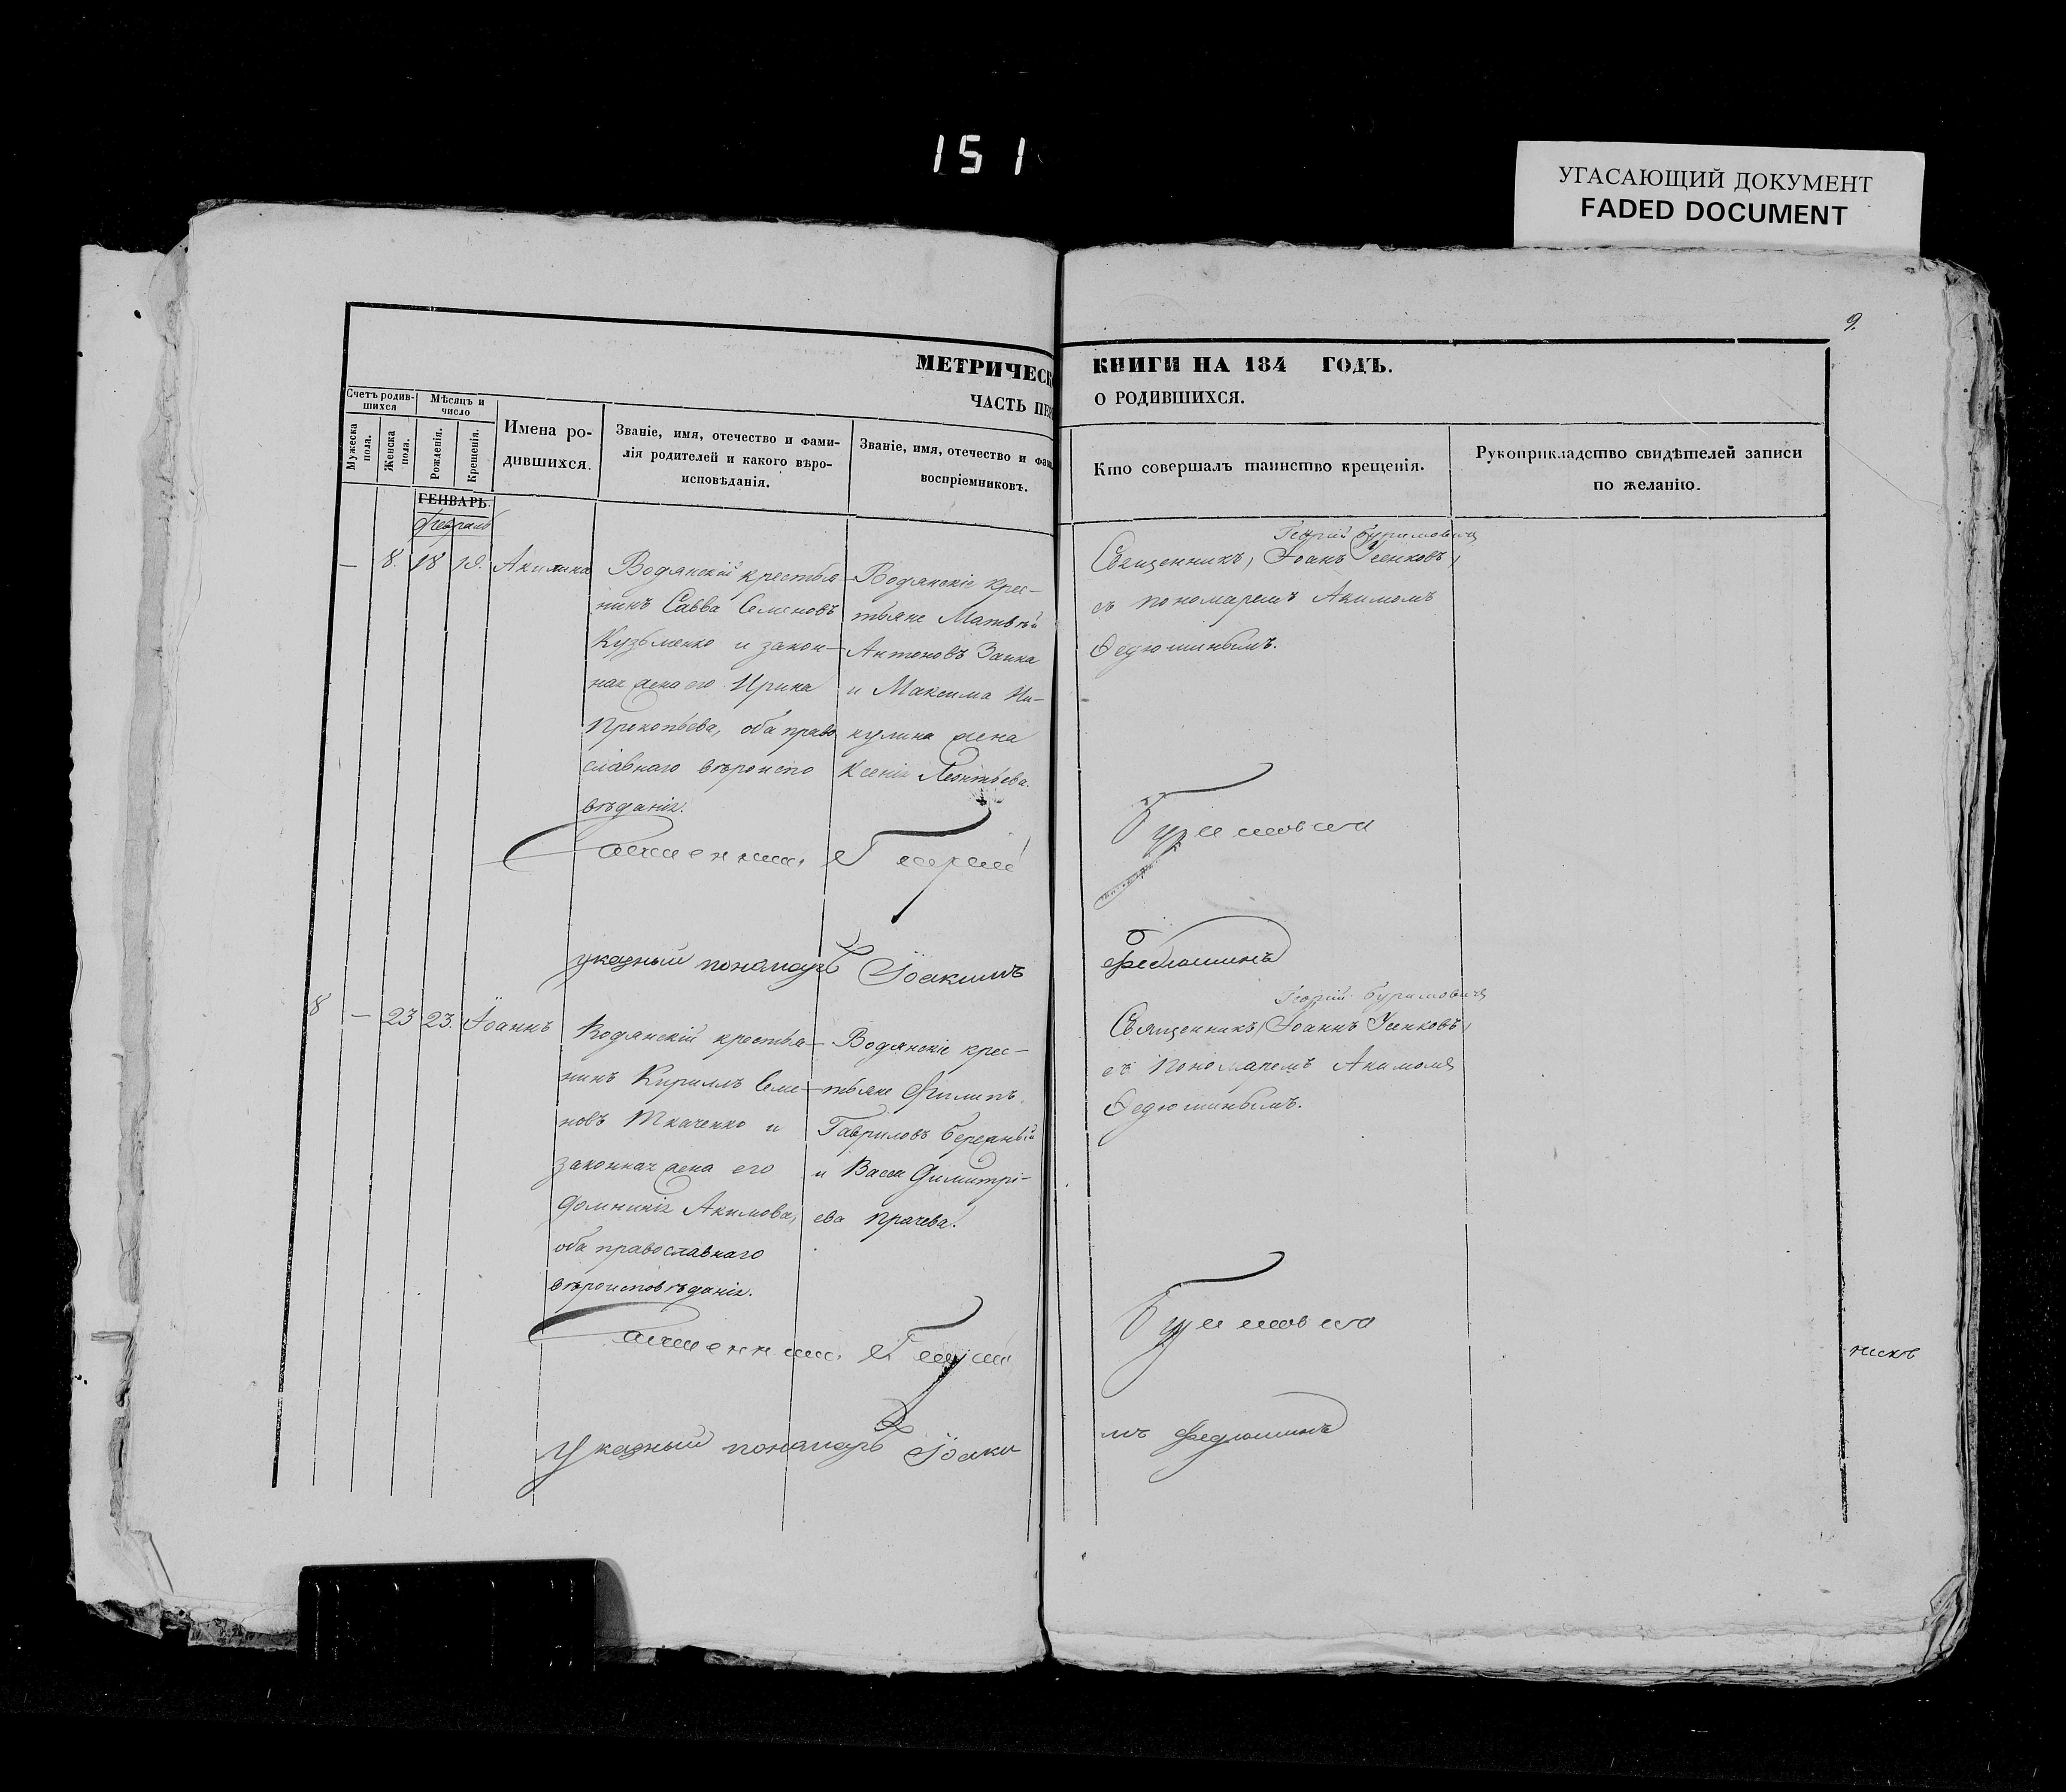 151
УГАСАЮЩИЙ ДОКУМЕНТ
FADED DOCUMENT
9.
МЕТРИЧЕСК
КНИГИ НА 184 ГОДЪ.
ЧАСТЬ ПЕР
О РОДИВШИХСЯ.
Счетъ родив-
шихся
Мужеска
пола.
Женска
пола.
Мѣсяцъ и
число
Рожденія.
Крещенія.
Имена ро-
дившихся.
Званіе, имя, отечество и фами-
лія родителей и какого вѣро-
исповѣданія.
Званіе, имя, отечество и фам
воспріемниковъ.
Кто совершалъ таинство крещенія.
Рукоприкладство свидѣтелей записи
по желанію.
ГЕНВАРЬ.
февраль
— 8. 18 19. Акилина
Водянскій крестья-
нинъ Савва Семеновъ
Кузьменко и закон-
ная жена его Ирина
Прокопьева, оба право
славнаго вѣроиспо
вѣданія.
Водянскіе крес-
тьяне Матвѣй
Антоновъ Заика
и Максима Ни-
кулина жена
Ксенія Леонтьева.
Георгій Буримовичъ
Священникъ, Іоанъ Усенковъ,
съ пономаремъ Акимомъ
Ѳедюшинымъ.
Священникъ Георгій
указный пономарь Іоакимъ
Федюшинъ
8 — 23 23. Іоаннъ
Водянскій крестья-
нинъ Кириллъ Семе-
новъ Ткаченко и
законная жена его
Домникія Акимова,
оба православнаго
вѣроисповѣданія.
Водянскіе крес-
тьяне Филипъ
Гавриловъ Бережный
и Васса Димитрі-
ева Прачева.
Георгій Буримовичъ
Священникъ, Іоаннъ Усенковъ,
съ пономаремъ Акимомъ
Ѳедюшинымъ.
Священникъ Георгій
Указный пономарь Іоаки
мъ Федюшинъ
никъ